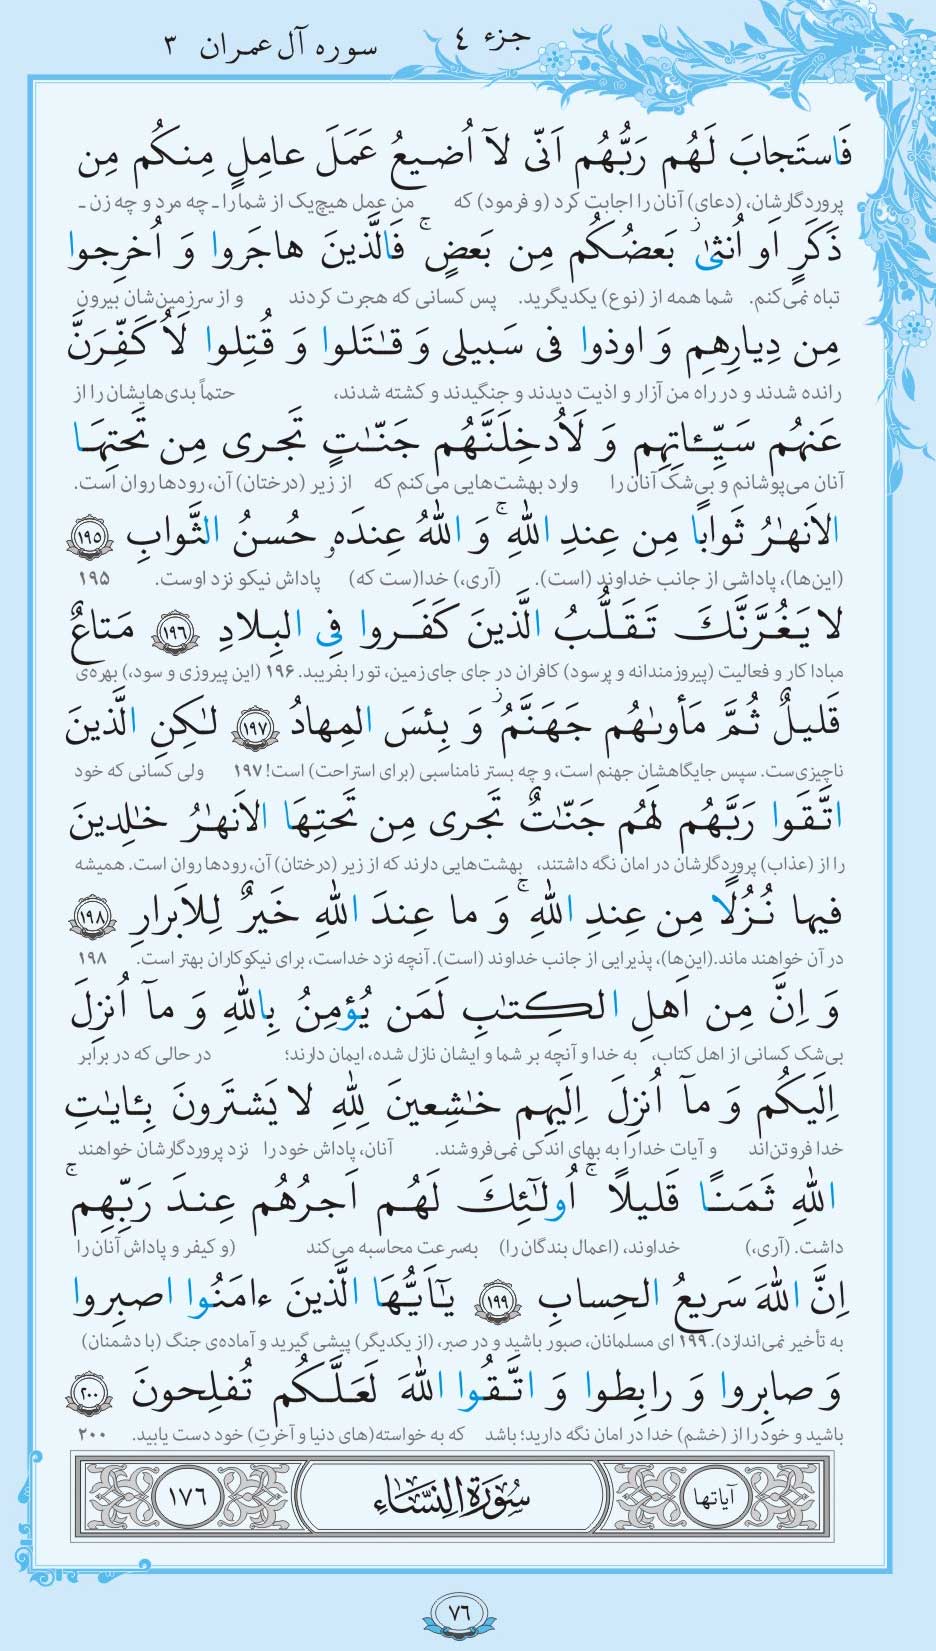 جزء ٤
سوره آل عمران ٣
فَاستَجابَ لَهُم رَبُّهُم اَنّى لاۤ اُضيعُ عَمَلَ عامِلٍ مِنكُم مِن
پروردگارشان، (دعای) آنان را اجابت کرد (و فرمود) که من عمل هیچ‌یک از شما را ـ چه مرد و چه زن ـ
ذَكَرٍ اَو اُنثىٰ ۖ بَعضُكُم مِن بَعضٍ ۚ فَالَّذينَ هاجَروا وَ اُخرِجوا
تباه نمی‌کنم. شما همه از (نوع) یکدیگرید. پس کسانی که هجرت کردند و از سرزمین‌شان بیرون
مِن دِيارِهِم وَ اوذوا فى سَبيلى وَ قٰتَلوا وَ قُتِلوا لَاُكَفِّرَنَّ
رانده شدند و در راه من آزار و اذیت دیدند و جنگیدند و کشته شدند، حتماً بدی‌هایشان را از
عَنهُم سَيِّـٔاتِهِم وَ لَاُدخِلَنَّهُم جَنّٰتٍ تَجرى مِن تَحتِهَا
آنان می‌پوشانم و بی‌شک آنان را وارد بهشت‌هایی می‌کنم که از زیر (درختان) آن، رودها روان است.
الاَنهٰرُ ثَوابًا مِن عِندِ اللهِ ۚ وَ اللهُ عِندَهو حُسنُ الثَّوابِ ﴿١٩٥﴾
(این‌ها)، پاداشی از جانب خداوند (است). (آری،) خدا(ست که) پاداش نیکو نزد اوست. ۱۹۵
لا يَغُرَّنَّكَ تَقَلُّبُ الَّذينَ كَفَروا فِى البِلادِ ﴿١٩٦﴾ مَتاعٌ
مبادا کار و فعالیت (پیروزمندانه و پرسود) کافران در جای جای زمین، تو را بفریبد. ۱۹۶ (این پیروزی و سود،) بهره‌ی
قَليلٌ ثُمَّ مَأوىٰهُم جَهَنَّمُ ۖ وَ بِئسَ المِهادُ ﴿١٩٧﴾ لٰكِنِ الَّذينَ
ناچیزی‌ست. سپس جایگاهشان جهنم است، و چه بستر نامناسبی (برای استراحت) است! ۱۹۷ ولی کسانی که خود
اتَّقَوا رَبَّهُم لَهُم جَنّٰتٌ تَجرى مِن تَحتِهَا الاَنهٰرُ خٰلِدينَ
را از (عذاب) پروردگارشان در امان نگه داشتند، بهشت‌هایی دارند که از زیر (درختان) آن، رودها روان است. همیشه
فيها نُزُلًا مِن عِندِ اللهِ ۚ وَ ما عِندَ اللهِ خَيرٌ لِلاَبرارِ ﴿١٩٨﴾
در آن خواهند ماند.(این‌ها)، پذیرایی از جانب خداوند (است). آنچه نزد خداست، برای نیکوکاران بهتر است. ۱۹۸
وَ اِنَّ مِن اَهلِ الكِتٰبِ لَمَن يُؤمِنُ بِاللهِ وَ ماۤ اُنزِلَ
بی‌شک کسانی از اهل کتاب، به خدا و آنچه بر شما و ایشان نازل شده، ایمان دارند؛ در حالی که در برابر
اِلَيكُم وَ ماۤ اُنزِلَ اِلَيهِم خٰشِعينَ لِلّٰهِ لا يَشتَرونَ بِـٔايٰتِ
خدا فروتن‌اند و آیات خدا را به بهای اندکی نمی‌فروشند. آنان، پاداش خود را نزد پروردگارشان خواهند
اللهِ ثَمَنًا قَليلًا ۚ اُولٰۤئِكَ لَهُم اَجرُهُم عِندَ رَبِّهِم ۚ
داشت. (آری،) خداوند، (اعمال بندگان را) به‌سرعت محاسبه می‌کند (و کیفر و پاداش آنان را
اِنَّ اللهَ سَريعُ الحِسابِ ﴿١٩٩﴾ يٰۤاَيُّهَا الَّذينَ ءامَنُوا اصبِروا
به تأخیر نمی‌اندازد). ۱۹۹ ای مسلمانان، صبور باشید و در صبر، (از یکدیگر) پیشی گیرید و آماده‌ی جنگ (با دشمنان)
وَ صابِروا وَ رابِطوا وَ اتَّقُوا اللهَ لَعَلَّكُم تُفلِحونَ ﴿٢٠٠﴾
باشید و خود را از (خشم) خدا در امان نگه دارید؛ باشد که به خواسته(های دنیا و آخرتِ) خود دست یابید. ۲۰۰
آیاتها
سُورَةُ النِّسَاءِ
١٧٦
٧٦